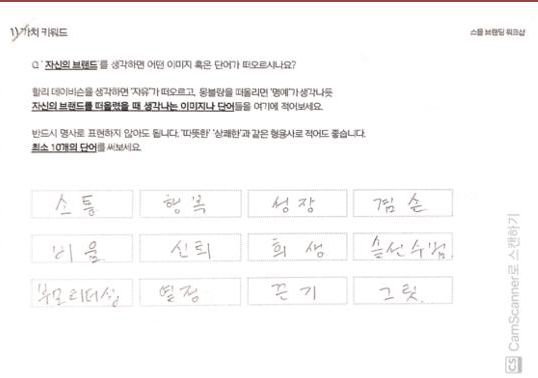 1) 가치 키워드
스몰 브랜딩 워크샵
Q. '자신의 브랜드'를 생각하면 어떤 이미지 혹은 단어가 떠오르시나요?
할리 데이비슨을 생각하면 "자유"가 떠오르고, 몽블랑을 떠올리면 "명예"가 생각나듯
자신의 브랜드를 떠올렸을 때 생각나는 이미지나 단어들을 여기에 적어보세요.
반드시 명사로 표현하지 않아도 됩니다. '따뜻한' '상쾌한'과 같은 형용사로 적어도 좋습니다.
최소 10개의 단어를 써보세요.
소통 행복 성장 겸손
비움 신뢰 희생 솔선수범
부모리더십 열정 끈기 그릿
CS CamScanner로 스캔하기